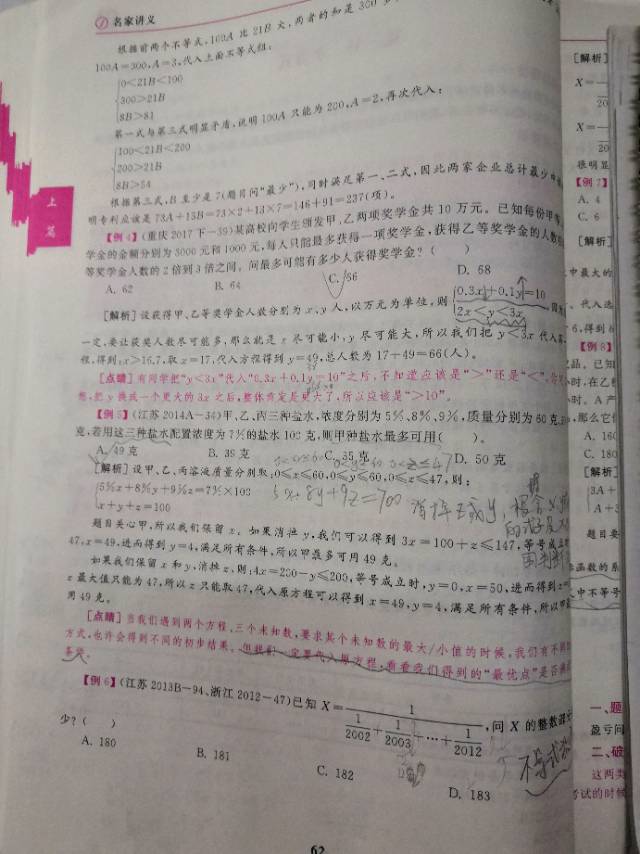 名家讲义
根据前两个不等式,100A 比 21B 大,两者的和是 300
100A=300,A=3,代入上面不等式组:
0<21B<100
300>21B
8B>81
第一式与第三式明显矛盾,说明 100A 只能为 200,A=2,再次代入:
100<21B<200
200>21B
8B>54
根据第三式,B 至少是 7(题目问“最少”),同时满足第一、二式,因此两家企业总计最少申
明专利应该是 73A+13B=73×2+13×7=146+91=237(项)。
【例 4】(重庆 2017 下-39)某高校向学生颁发甲、乙两项奖学金共 10 万元。已知每份甲
学金的金额分别为 3000 元和 1000 元,每人只能最多获得一项奖学金,获得乙等奖学金的人数
等奖学金人数的 2 倍到 3 倍之间。问最多可能有多少人获得奖学金?( )
A. 62 B. 64 C. 66 D. 68
[解析] 设获得甲、乙等奖学金人数分别为 x、y 人,以万元为单位,则
0.3x+0.1y=10
2x<y<3x
一定,要让获奖人数尽可能多,那么就是 x 尽可能小,y 尽可能大,所以我们把 y<3x 代入
程,得到:x>16.7,取 x=17,代入方程得到 y=49,总人数为 17+49=66(人)。
[点睛] 有同学把“y<3x”代入“0.3x+0.1y=10”之后,不知道应该是“>”还是“<”,
想,把 y 换成一个更大的 3x 之后,整体肯定是更大了,所以应该是“>10”。
【例 5】(江苏 2014A-34)甲、乙、丙三种盐水,浓度分别为 5%、8%、9%,质量分别为 60 克、
克,若用这三种盐水配置浓度为 7%的盐水 100 克,则甲种盐水最多可用( )。
A. 49 克 B. 39 克 C. 35 克 D. 50 克
[解析] 设甲、乙、丙溶液质量分别取:0≤x≤60,0≤y≤60,0≤z≤47,则:
5%x+8%y+9%z=7%×100
x+y+z=100
5x+8y+9z=700
题目关心甲,所以我们保留 x。如果消掉 y,我们可以得到 3x=100+z≤147,等号成立
47,x=49,进而得到 y=4,满足所有条件,所以甲最多可用 49 克。
如果我们保留 x 和 y,消掉 z,则:4x=200-y≤200,等号成立时,y=0,x=50,进而得到
z 最大值只能为 47,所以 z 只能取 47,代入原方程可以得到 x=49,y=4,满足所有条件,所以甲
用 49 克。
[点睛] 当我们遇到两个方程、三个未知数,要求某个未知数的最大/小值的时候,我们有不同
方式,也许会得到不同的初步结果。但我们一定要代入原方程,看看我们得到的“最优点”是否满足
条件。
【例 6】(江苏 2013B-94、浙江 2012-47)已知 X=1/(1/2002+1/2003+…+1/2012),问 X 的整数部分
少?( )
A. 180 B. 181 C. 182 D. 183
不等式
62
上篇
[解析]
X=
20
X=
20
很明显
【例 7】
A. 4
C. 6
[解析]
中最大的
、代入选
6,得到
【例 8】
品。已知
时,在乙
时。A 产
,那么它
A. 160
C. 180
[解析]
3A+
A+3
题目要
函数的系
中不等号
一、题
盈亏问
二、破
这两类
考试的时候